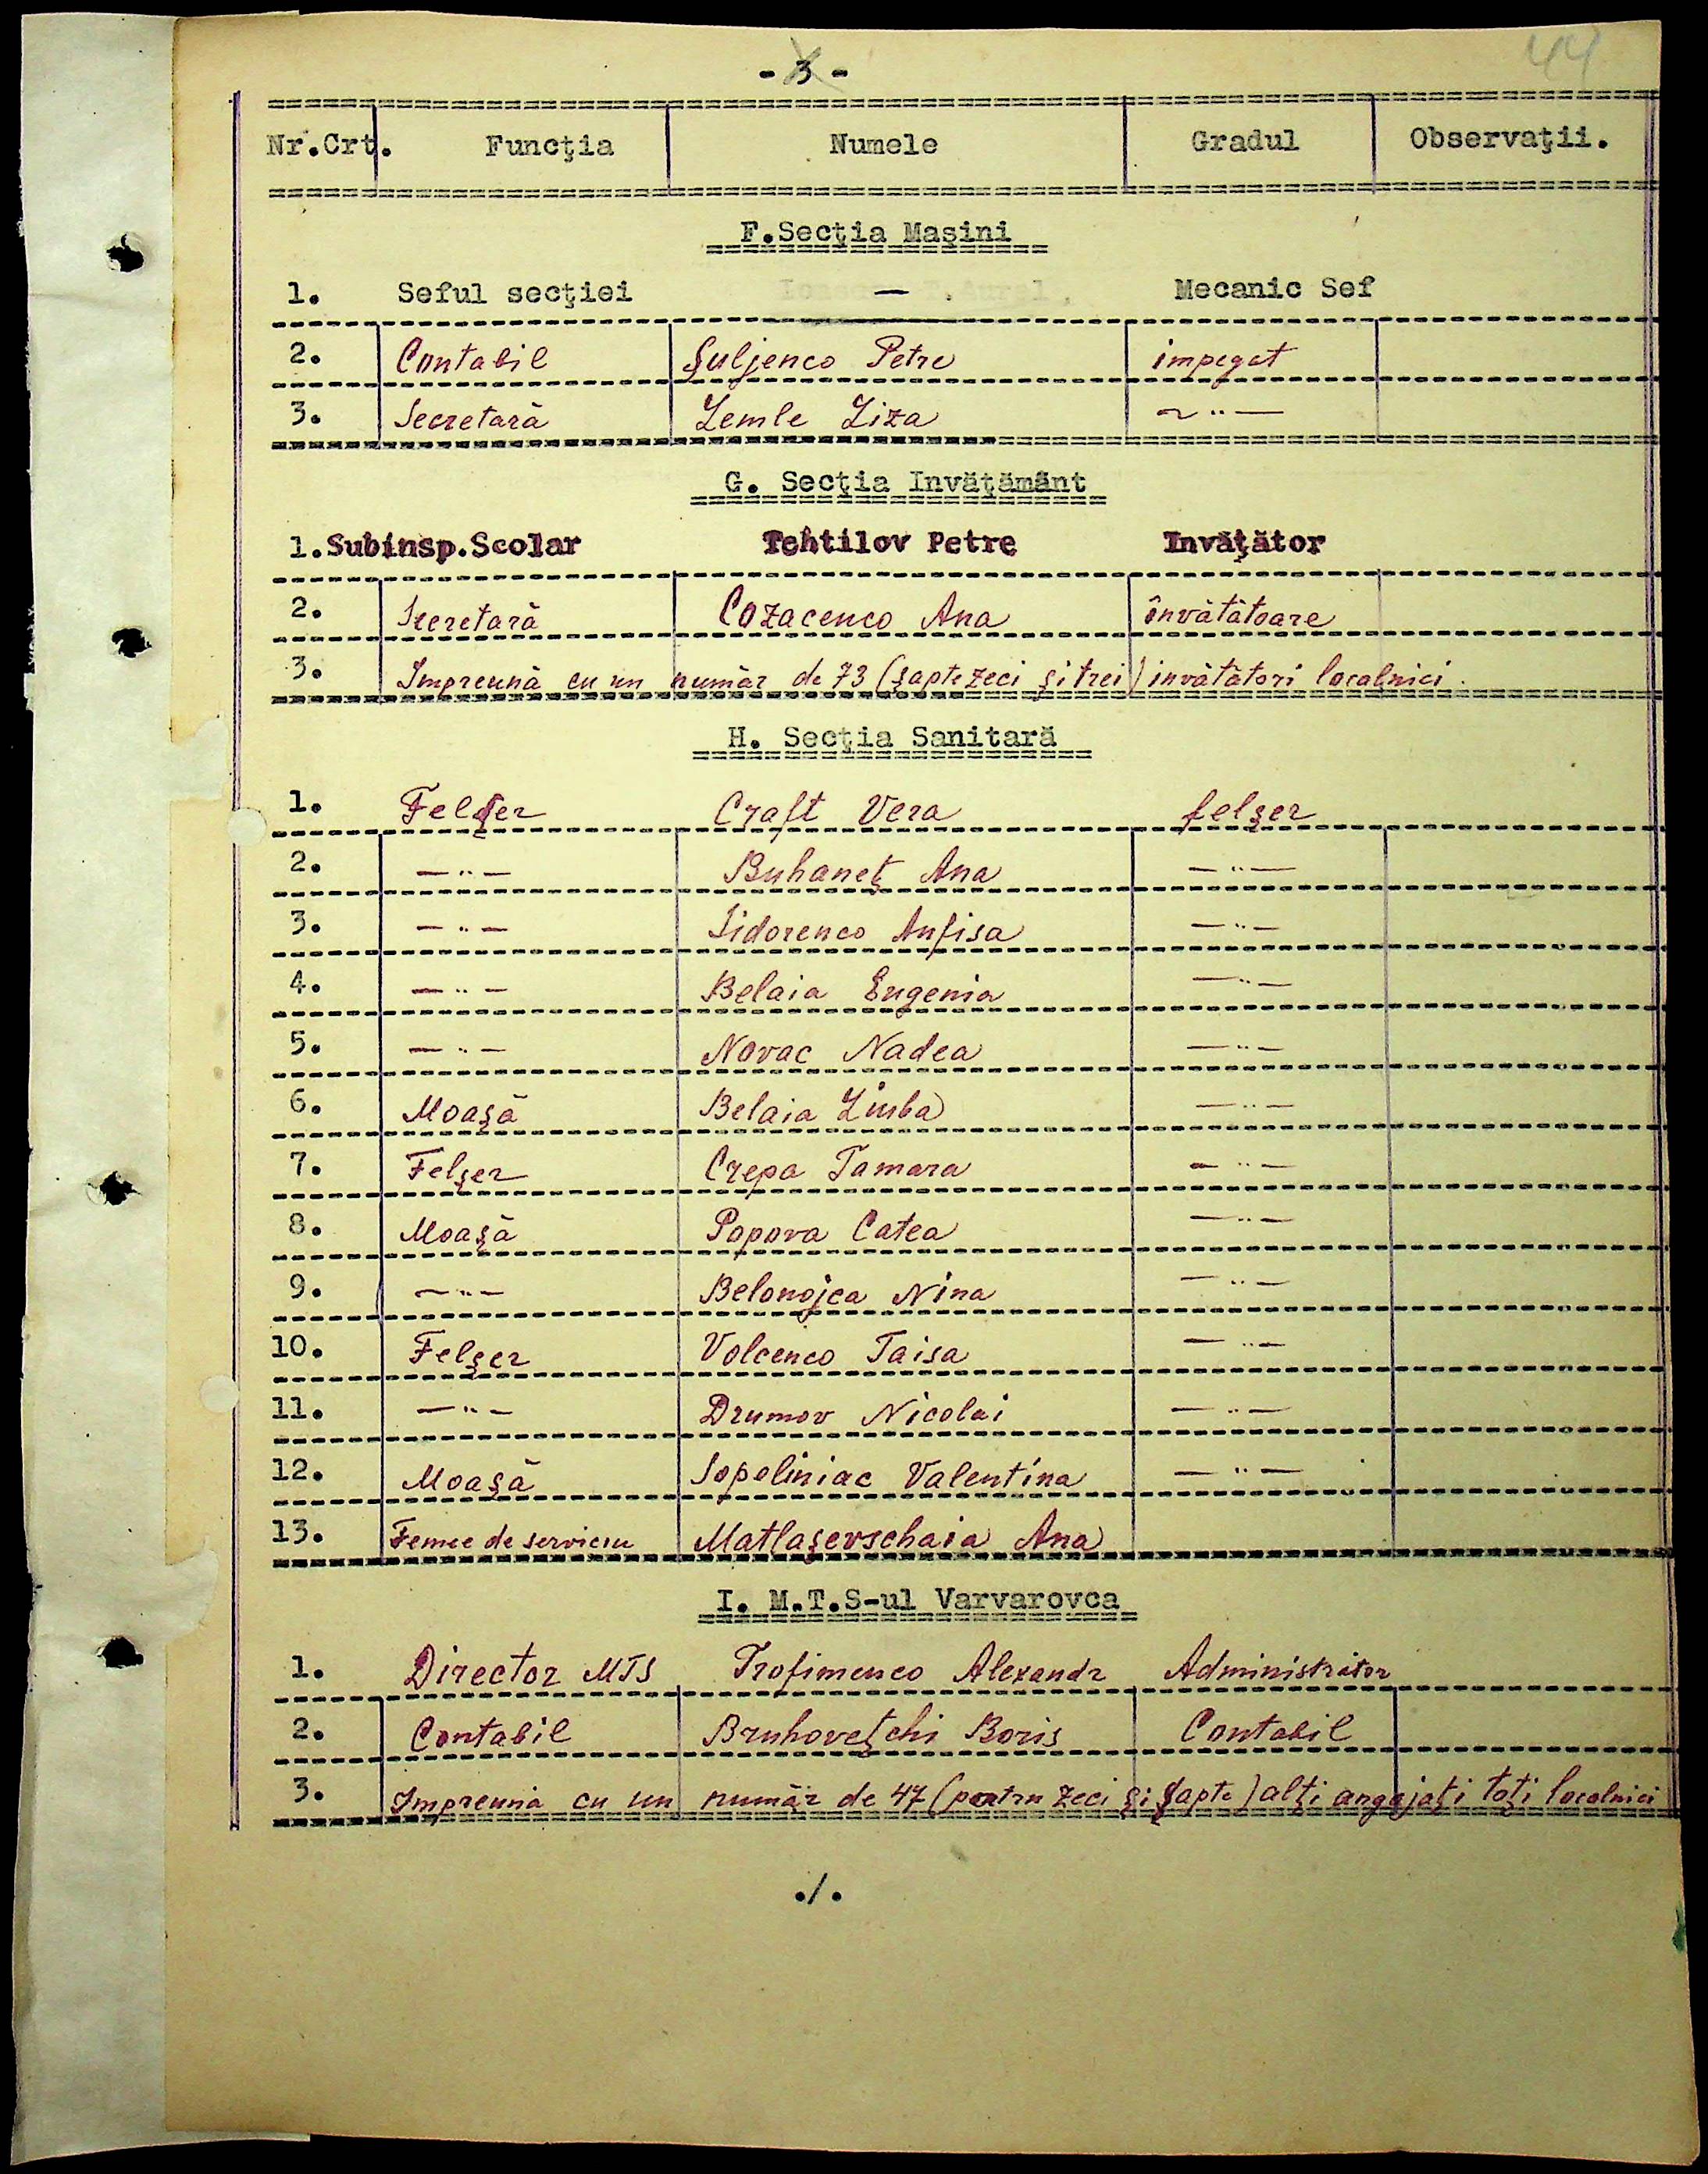 44
- 3 -
Nr.Crt. Funcţia Numele Gradul Observaţii.
F.Secţia Maşini
1. Seful secţiei — Mecanic Sef
2. Contabil Şuljenco Petre impegat
3. Secretară Lemle Liza — " —
G. Secţia Invăţământ
1.Subinsp.Scolar Tehtilov Petre Invăţător
2. Secretară Cozacenco Ana învătătoare
3. Impreună cu un număr de 73 (şaptezeci şi trei) invătători localnici.
H. Secţia Sanitară
1. Felşer Craft Vera felşer
2. — " — Buhaneţ Ana — " —
3. — " — Sidorenco Anfisa — " —
4. — " — Belaia Eugenia — " —
5. — " — Novac Nadea — " —
6. Moaşă Belaia Liuba — " —
7. Felşer Crepa Tamara — " —
8. Moaşă Popova Catea — " —
9. — " — Belonojca Nina — " —
10. Felşer Volcenco Taisa — " —
11. — " — Drumov Nicolai — " —
12. Moaşă Sopeliniac Valentina — " —
13. Femee de serviciu Matlaşevschaia Ana
I. M.T.S-ul Varvarovca
1. Director MTS Trofimenco Alexandr Administrator
2. Contabil Bruhoveţchi Boris Contabil
3. Impreună cu un număr de 47 (patru zeci şi şapte) alţi angajaţi toţi localnici
./.